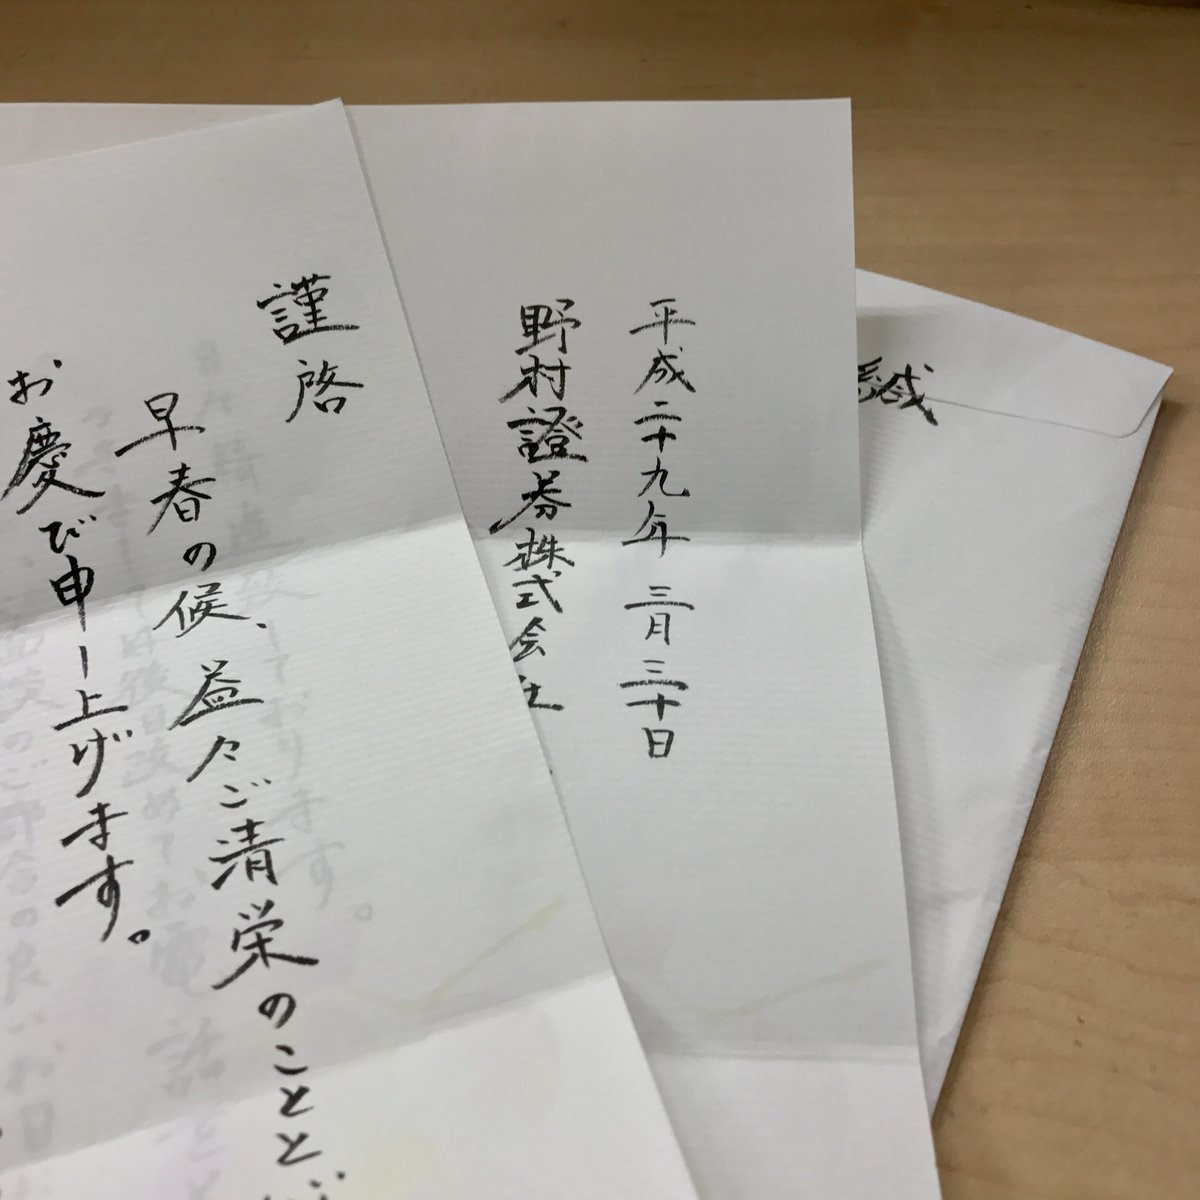 謹啓
早春の候、益々ご清栄のことと
お慶び申し上げます。
平成二十九年三月三十日
野村證券株式会社
緘